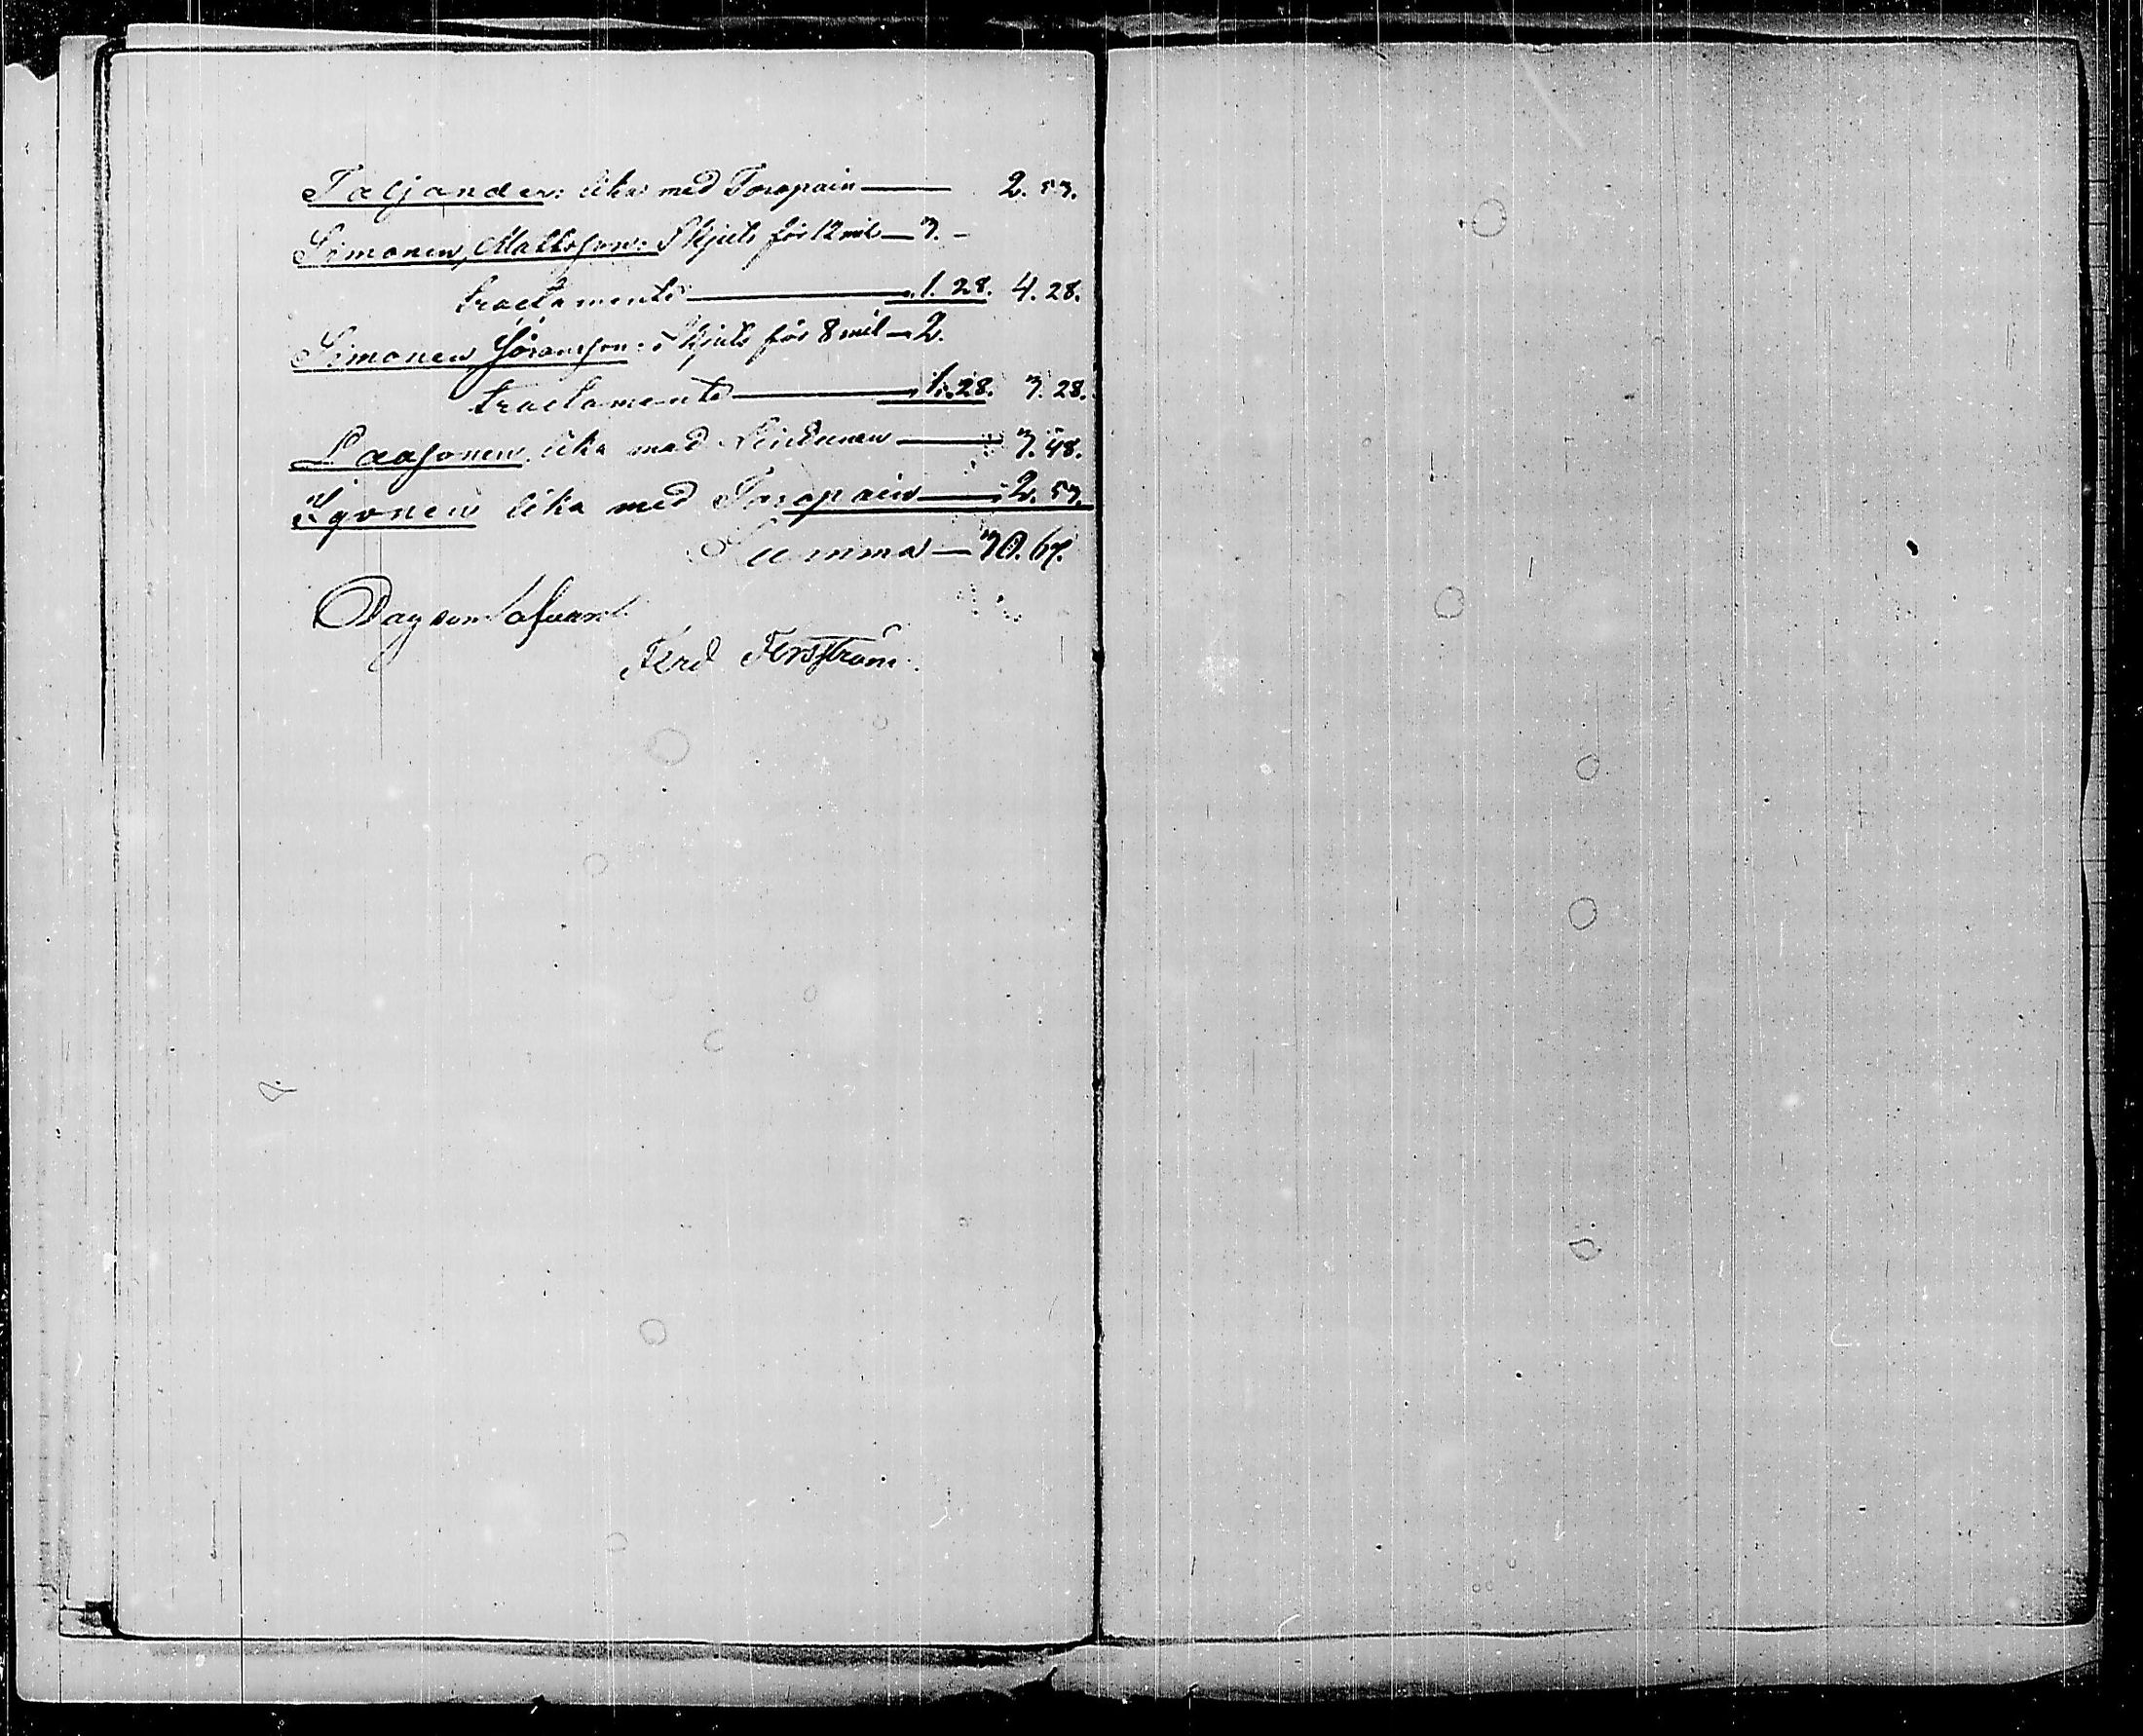 Taljander: lika med Toropain — 2. 53.
Simonen, Mattsson: Skjuts för 12 mil — 3. –
tractamente — 1. 28. 4. 28.
Simonen Göransson: Skjuts för 8 mil — 2.
tractamente — 1. 28. 3. 28.
Laasonen lika med — 3. 48.
lika med Toropain — 2. 53.
Summa — 30. 67.
Dag som
Ferd Forsström.